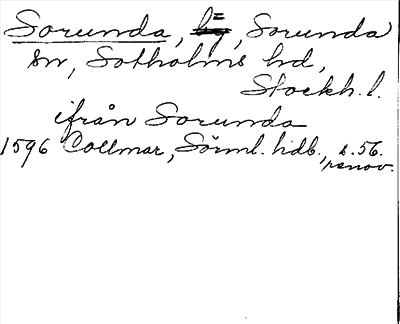 Sorunda, by, Sorunda
sn, Sotholms hd,
Stockh. l.
ifrån Sorunda
1596 Collmar, Sörml. hdb., s. 56.
renov.